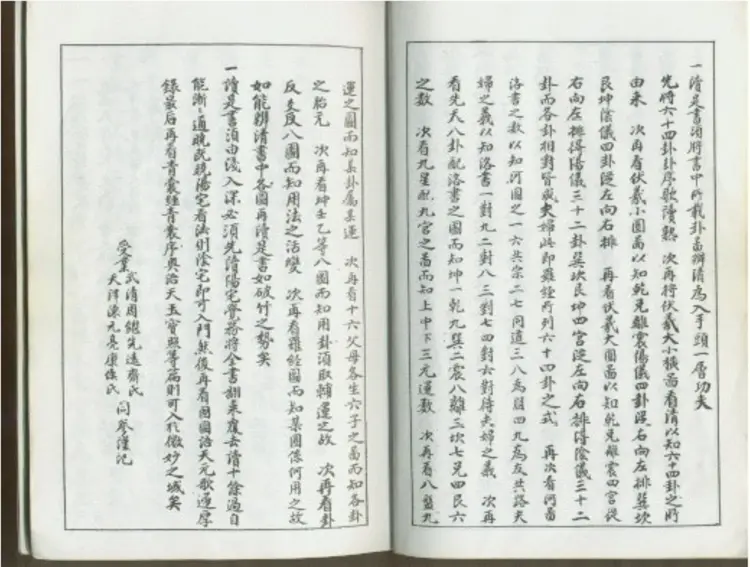 一讀是書須將書中所載卦圖辦清為入手頭一層功夫
先將六十四卦卦序歌讀熟 次再將伏羲大小橫圖看清以知六十四卦之所
由來 次再看伏羲小圓圖以知乾兌離震陽儀四卦從右向左排巽坎
艮坤陰儀四卦從左向右排 再看伏羲大圓圖以知乾兌離震四宮從
右向左排得陽儀三十二卦巽坎艮坤四宮從左向右排得陰儀三十二
卦而各卦相對皆成夫婦此即羅經所列六十四卦之式 再次看河圖
洛書之數以知河圖之一六共宗二七同道三八為朋四九為友共路夫
婦之義以知洛書一對九二對八三對七四對六對待夫婦之義 次再
看先天八卦配洛書之圖而知坤一乾九巽二震八離三坎七兌四艮六
之數 次看九星配九宮之圖而知上中下三元運數 次再看八盤九
運之圖而知某卦屬某運 次再看十六父母各生六子之圖而知各卦
之胎元 次再看坤壬乙等八圖而知用卦須取輔運之故 次再看卦
反爻反八圖而知用法之活變 次再看羅經圖而知某圖係何用之故
如能辨清書中各圖再讀是書如破竹之勢矣
一讀是書須由淺入深必須先讀陽宅覺器將全書翻來覆去讀十餘遍自
能漸通曉既曉陽宅看法則陰宅即可入門然後再看因國語天元歌運厚
錄最后再看青囊經青囊序奧語天玉寶照等篇則可入於微妙之域矣
受業 武清周繼先遠齋氏
天津陳元亮康侯氏 仝參謹記